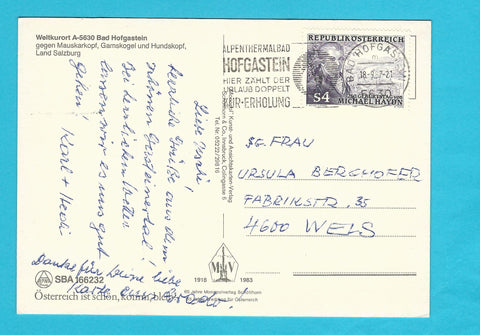 Weltkurort A-5630 Bad Hofgastein
gegen Mauskarkopf, Gamskogel und Hundskopf,
Land Salzburg
ALPENTHERMALBAD
HOFGASTEIN
HIER ZÄHLT DER
URLAUB DOPPELT
KUR-ERHOLUNG
BAD HOFGASTEIN
5630
REPUBLIK ÖSTERREICH
S4
250. GEBURTSTAG VON
MICHAEL HAYDN
Liebe
herzliche Grüße aus dem
schönen Gasteinertal!
Bei herrlichem Wetter
lassen wir es uns gut
gehen!
Karl + Hedi
Danke für Deine liebe
Karte
SG. FRAU
URSULA BERGHOFER
FABRIKSTR. 35
4600 WELS
SBA 166232
Österreich ist schön, komm, bleib
Kunst- und Ansichtskarten-Verlag
& Co., Innsbruck,
Tel. Nr. 05222/20816
1918
1983